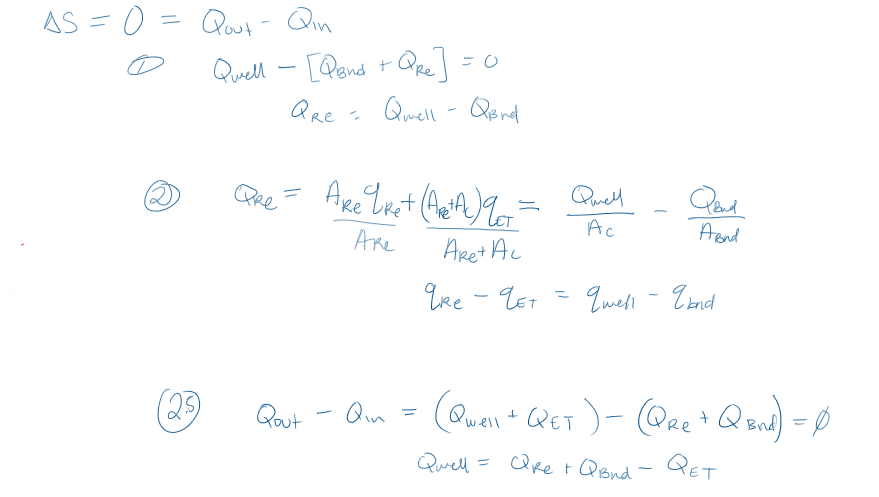 ΔS = 0 = Qout - Qin
① Qwell - [QBnd + QRe] = 0
QRe = Qwell - QBnd
② QRe = ARe qRe + (ARe+Ac) qET = Qwell - QBnd
ARe ARe + Ac Ac ABnd
qRe - qET = qwell - qbnd
(2.5) Qout - Qin = (Qwell + QET) - (QRe + QBnd) = ∅
Qwell = QRe + QBnd - QET